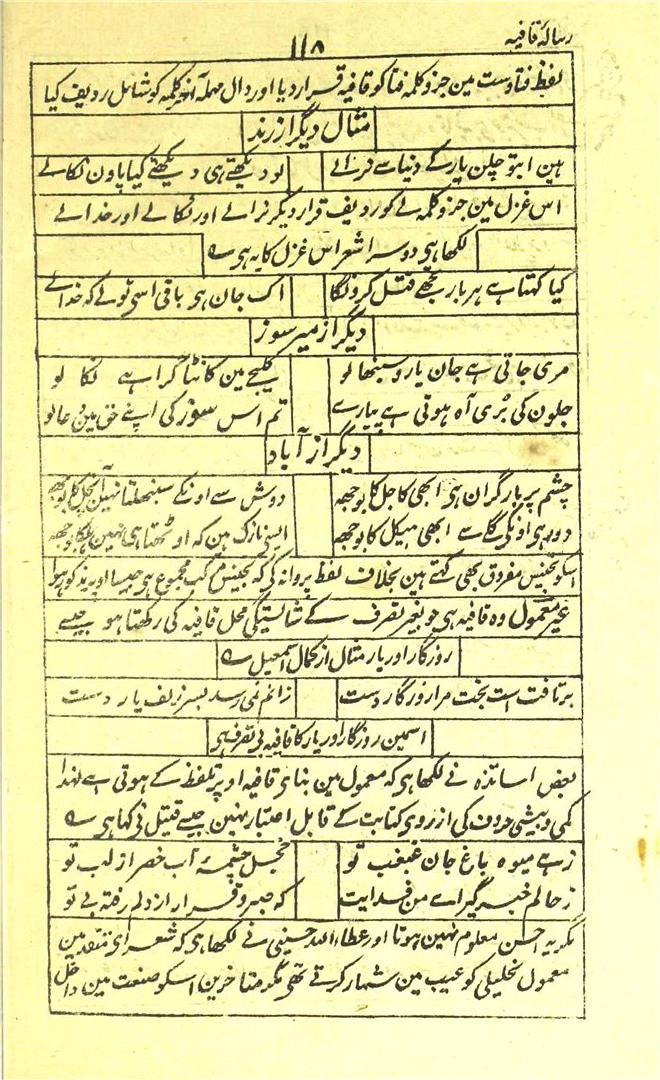 رسالۂ قافیہ
۱۱۵
لفظ فتاوست مین جزو کلمہ فتا کو قافیہ قرار دیا اور دال مہملہ آخر کلمہ کو شامل ردیف کیا
مثال دیگر از رند
ہین ابتو چلن یار کے دنیا سے نرالے
لو دیکھتے ہی دیکھتے کیا پاون نکالے
اس غزل مین جزو کلمہ لے کو ردیف قرار دیکر نرالے اور نکالے اور خدالے
لکھا ہی دوسرا شعر اس غزل کا یہ ہی ے
کیا کہتا ہے ہر بار تجھے قتل کرونگا
اک جان ہی باقی اسی تو لے کہ خدا لے
دیگر از میر سوز
مری جاتی ہے جان یارو سنبھالو
کلیجے مین کانٹا گرا ہے نکا لو
جلون کی بُری آہ ہوتی ہے پیارے
تم اس سوز کی اپنے حق مین دعا لو
دیگر از آباد
چشم پر بار گران ہی ابھی کاجل کا بوجھ
دوش سے اونکے سنبھلتا نہین آنچل کا بوجھ
دور ہی اونکی گلے سے ابھی ہیکل کا بوجھ
ایسی نازک ہین کہ اوٹھتا ہی نہین ہلکا بوجھ
اسکو تجنیس مفروق بھی کہتے ہین بخلاف لفظ پروانہ کی کہ تجنیس مرکب مجموع ہی جیسا اوپر مذکور ہوا
غیر معمول وہ قافیہ ہی جو بغیر تصرف کے شائستگی محل قافیہ کی رکھتا ہو جیسے
روزگار اور یار مثال از کمال اسمعیل ے
برتافت است بخت مرا روزگار دست
زانم نمی رسد بسر زلف یار دست
اسمین روزگار اور یار کا قافیہ بی تصرف ہی
بعض اساتذہ نے لکھا ہی کہ معمول مین بنای قافیہ اوپر تلفظ کے ہوتی ہے لہذا
کمی و بیشی حروف کی از روی کتابت کے قابل اعتبار نہین جیسے قتیل نی کہا ہی ے
زہے میوہ باغ جان غبغب تو
خجل چشمۂ آب خضر از لب تو
ز حالم خبر گیر اے من فدایت
کہ صبر و قرار از دلم رفتہ بے تو
مگر یہ احسن معلوم نہین ہوتا اور عطاء اللہ حسینی نے لکھا ہی کہ شعرای متقدمین
معمول تحلیلی کو عیب مین شمار کرتے تھی مگر متاخرین اسکو صنعت مین داخل